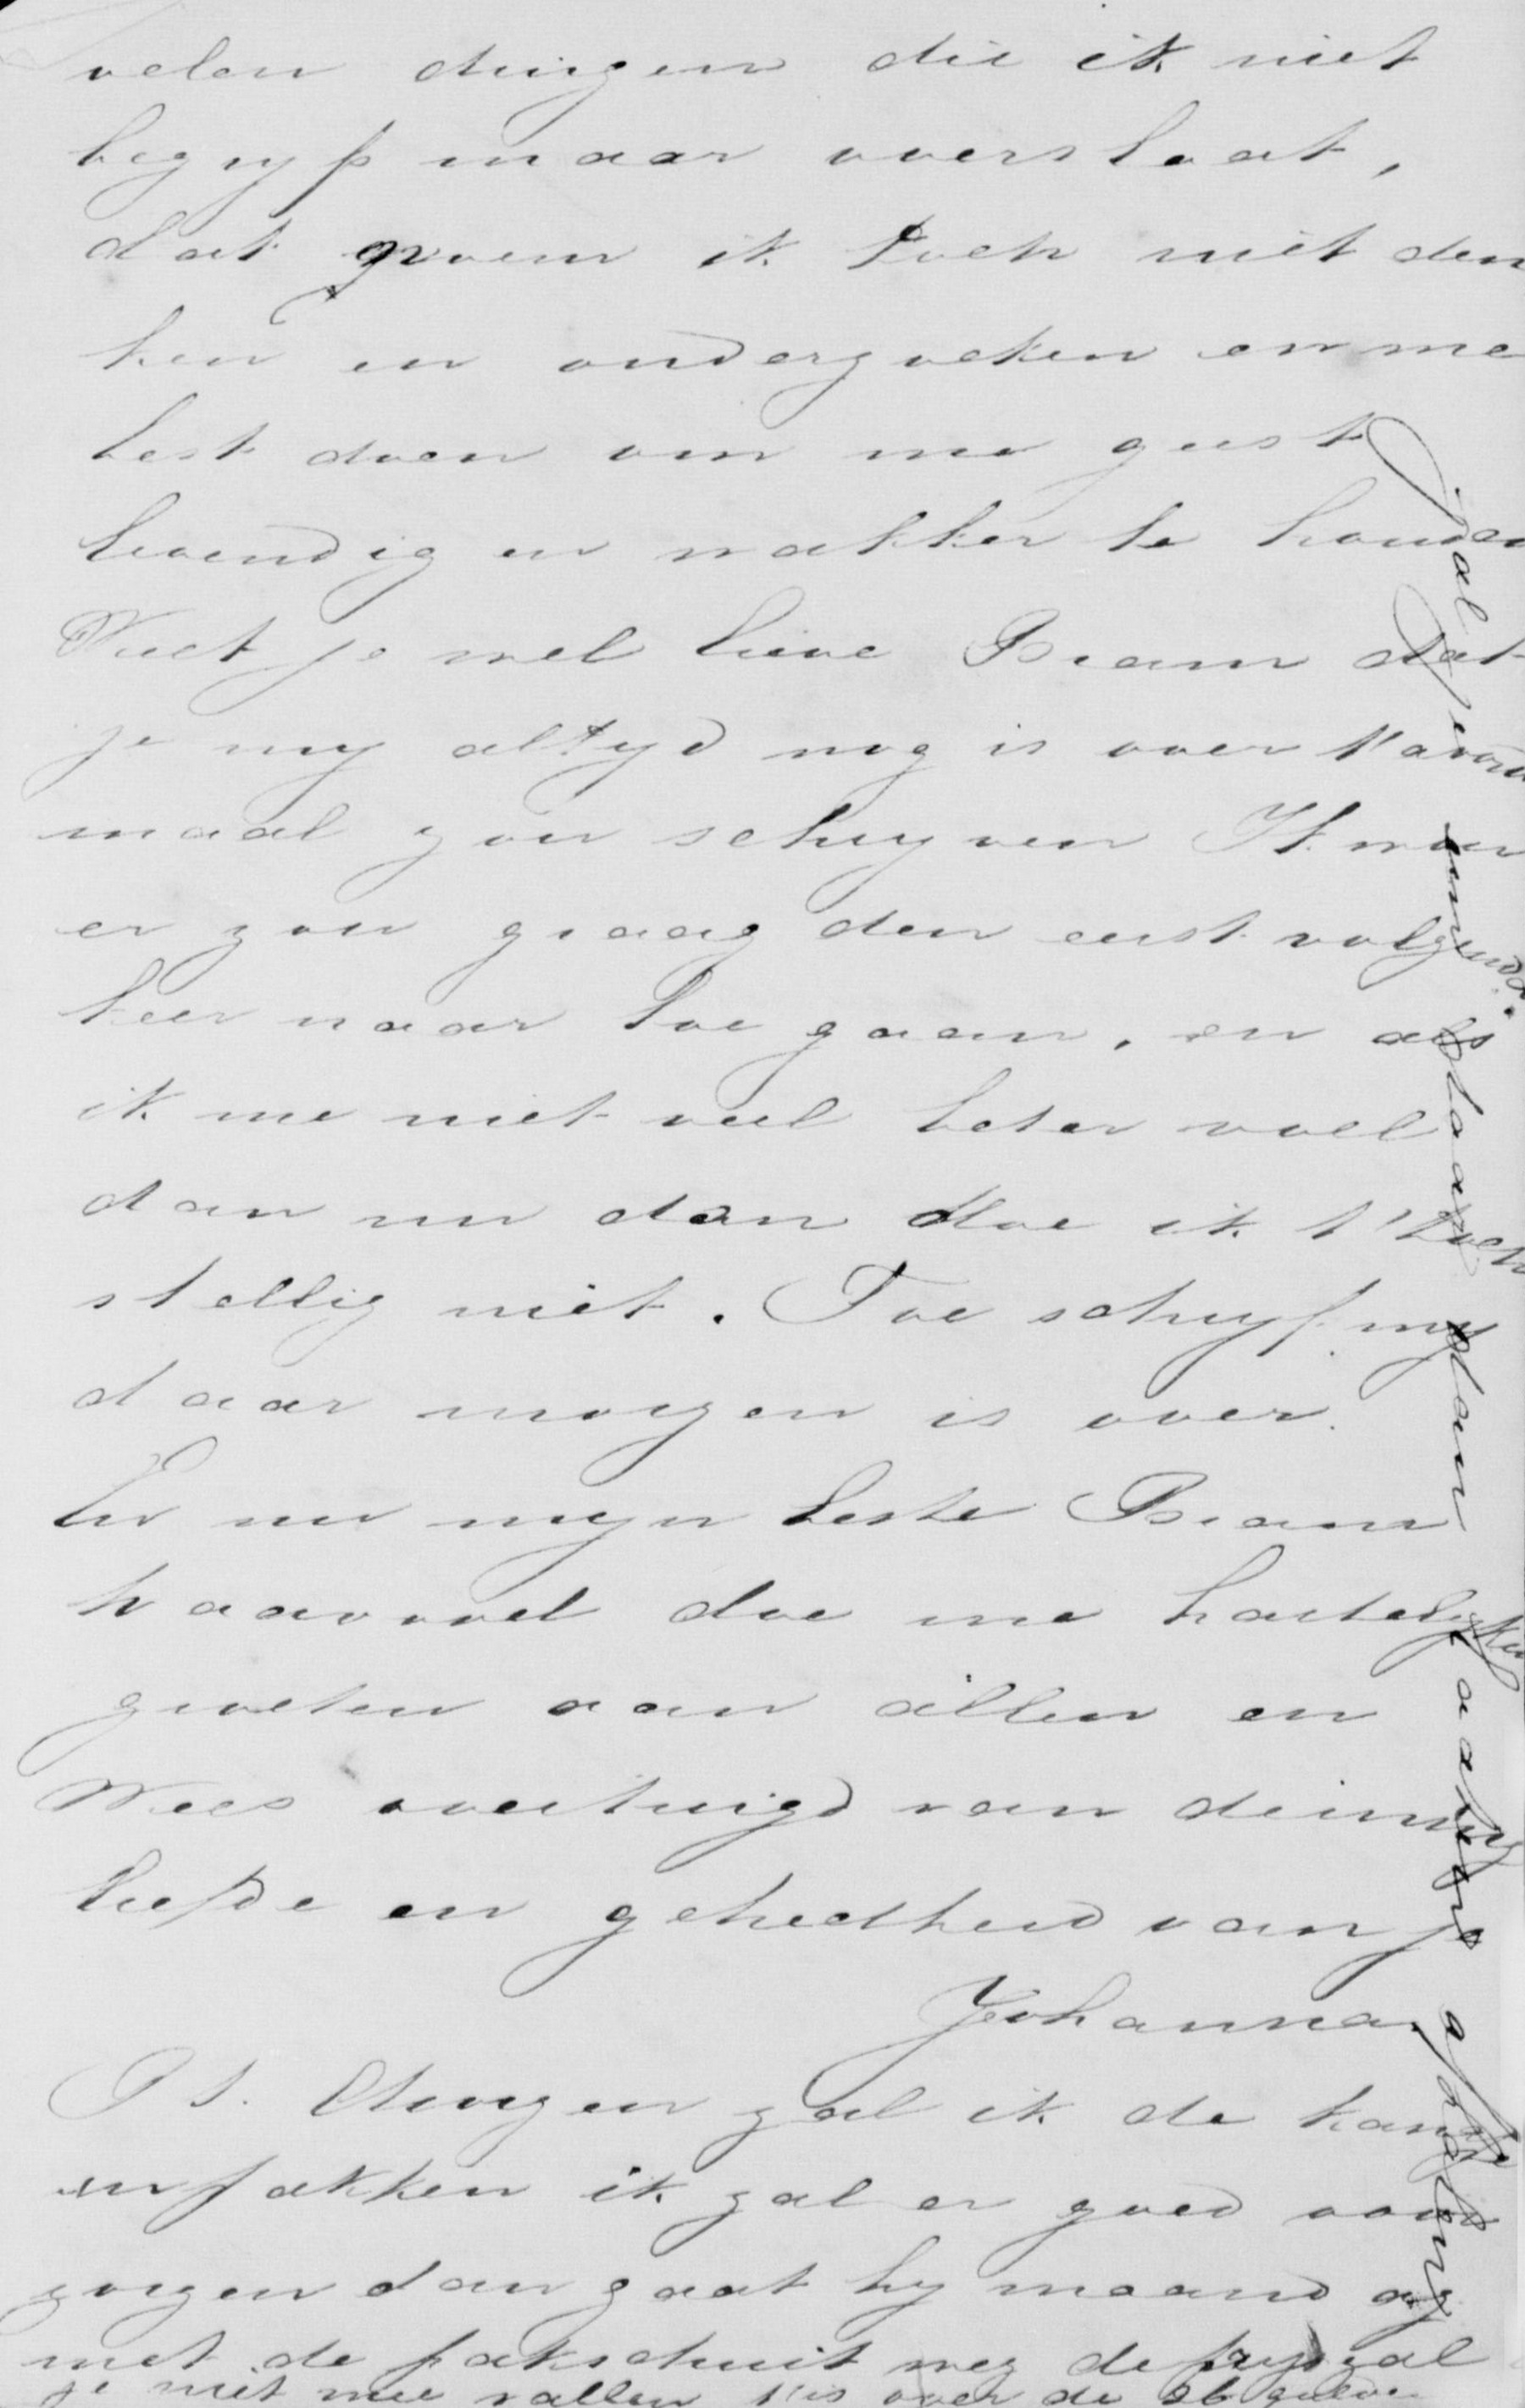 velen dingen die ik niet
begryp maar overslaat,
dat groem ik toch niet den
ken en onderzoeken en me
best doen om me geest
levendig en wakker te houden
Weet je wel lieve Bram dat
je my altyd nog is over 't avond
maal zou schryven Ik wou
er zou graag den eerst volgende
keer naar toe gaan, en als
ik me niet veel beter voel
dan nu dan doe ik 't toch
stellig niet. Toe schryf my
daar morgen is over.
En nu myn beste Bram
vaarwel doe me hartelyke
groeten aan allen en
Wees overtuigd van de innig
liefde en gehechtheid van je
Johanna.
P S. Morgen zal ik de
inpakken ik zal er goed voor
zorgen dan gaat hy maandag
met de pakschuit weg de prys zal
je niet mee vallen 't is over de 26 gulden
Zal je